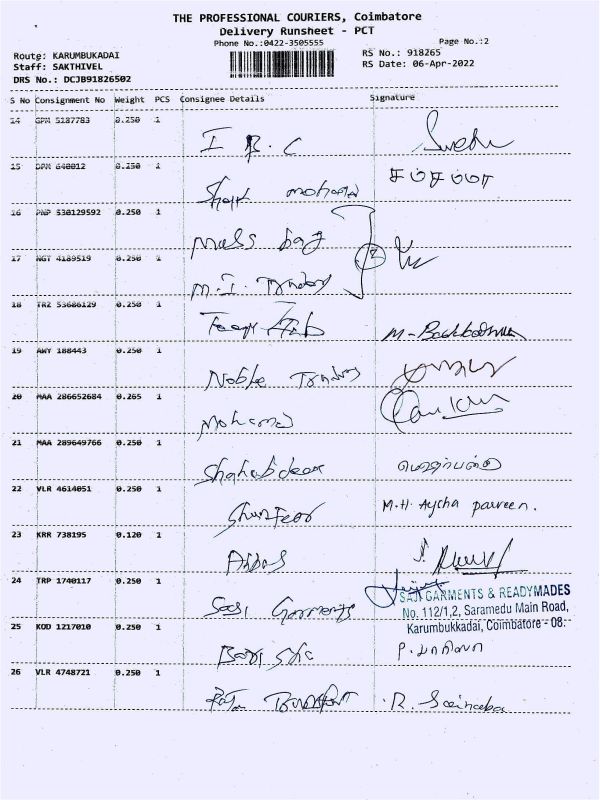 THE PROFESSIONAL COURIERS, Coimbatore
Delivery Runsheet - PCT
Phone No.:0422-3505555
Page No.:2
Route: KARUMBUKADAI
RS No.: 918265
Staff: SAKTHIVEL
RS Date: 06-Apr-2022
DRS No.: DCJB91826502
S No Consignment No Weight PCS Consignee Details Signature
14 GPM 5187783 0.250 1
I B. C
15 640012 0.250 1
16 PNP 530129592 0.250 1
Mass bag
17 NGT 4189519 0.250 1
2
M.I. Trading
18 TRZ 53686129 0.250 1
19 AWY 188443 0.250 1
Noble Trading
20 MAA 286652684 0.265 1
Mohamed
21 MAA 289649766 0.250 1
Shahabdeen
22 VLR 4614051 0.250 1
M.H. Aycha parveen.
23 KRR 738195 0.120 1
Abbas
24 TRP 1740117 0.250 1
SAJI GARMENTS & READYMADES
No. 112/1,2, Saramedu Main Road,
Garments
Karumbukkadai, Coimbatore - 08.
25 KOD 1217010 0.250 1
26 VLR 4748721 0.250 1